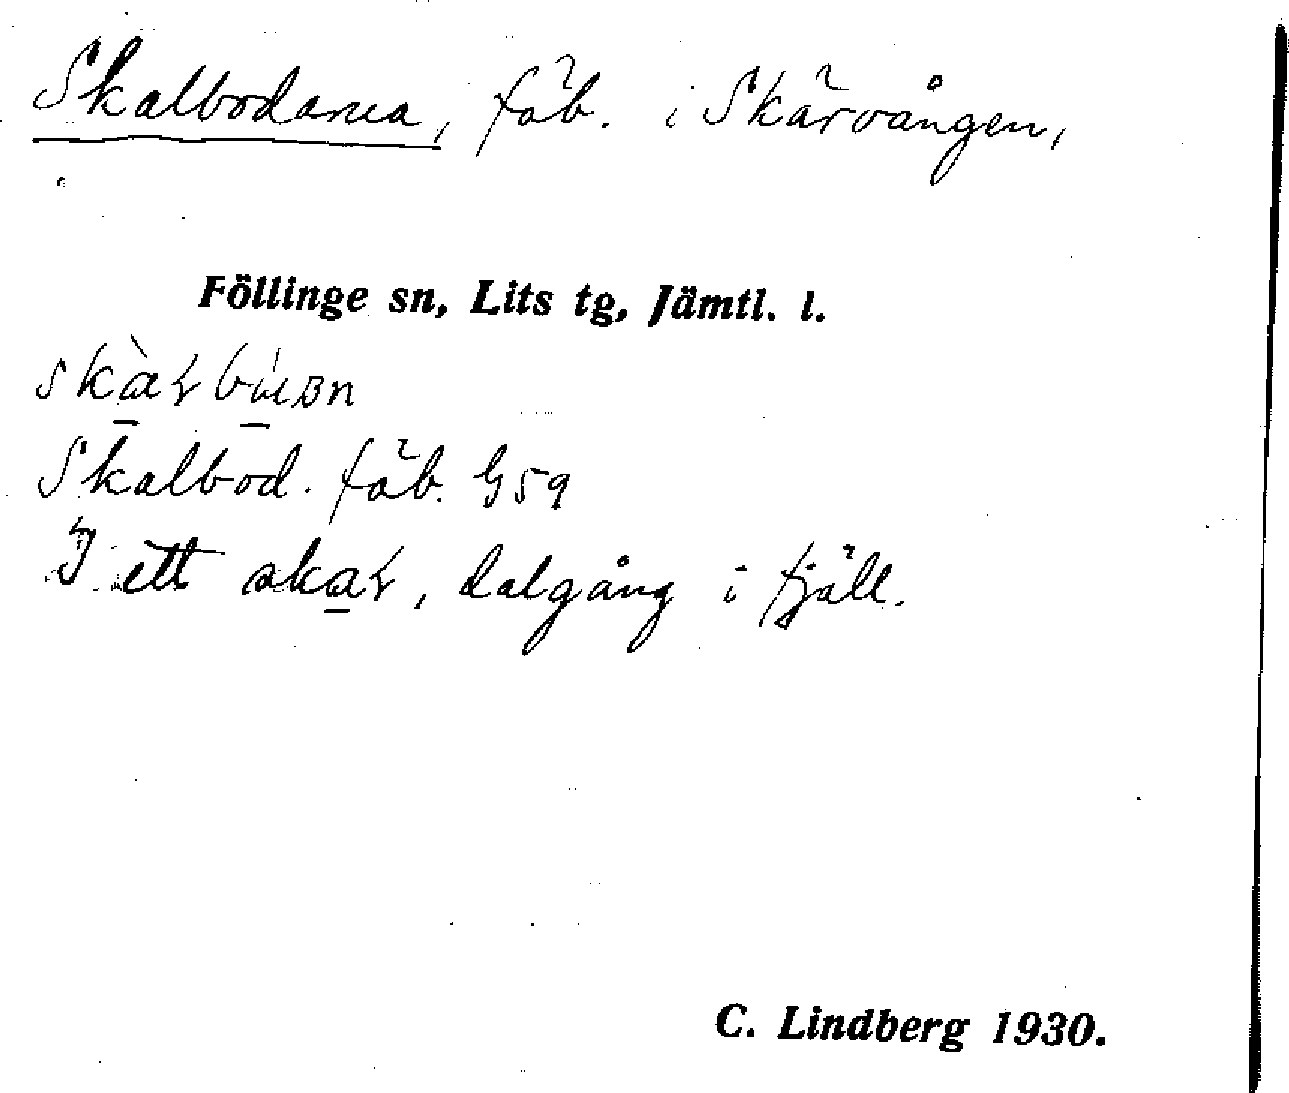 Skalbodarna, fäb. i Skärvången,
Föllinge sn, Lits tg, Jämtl. l.
Skalbod. fäb. G59
I ett skaɽ, dalgång i fjäll.
C. Lindberg 1930.